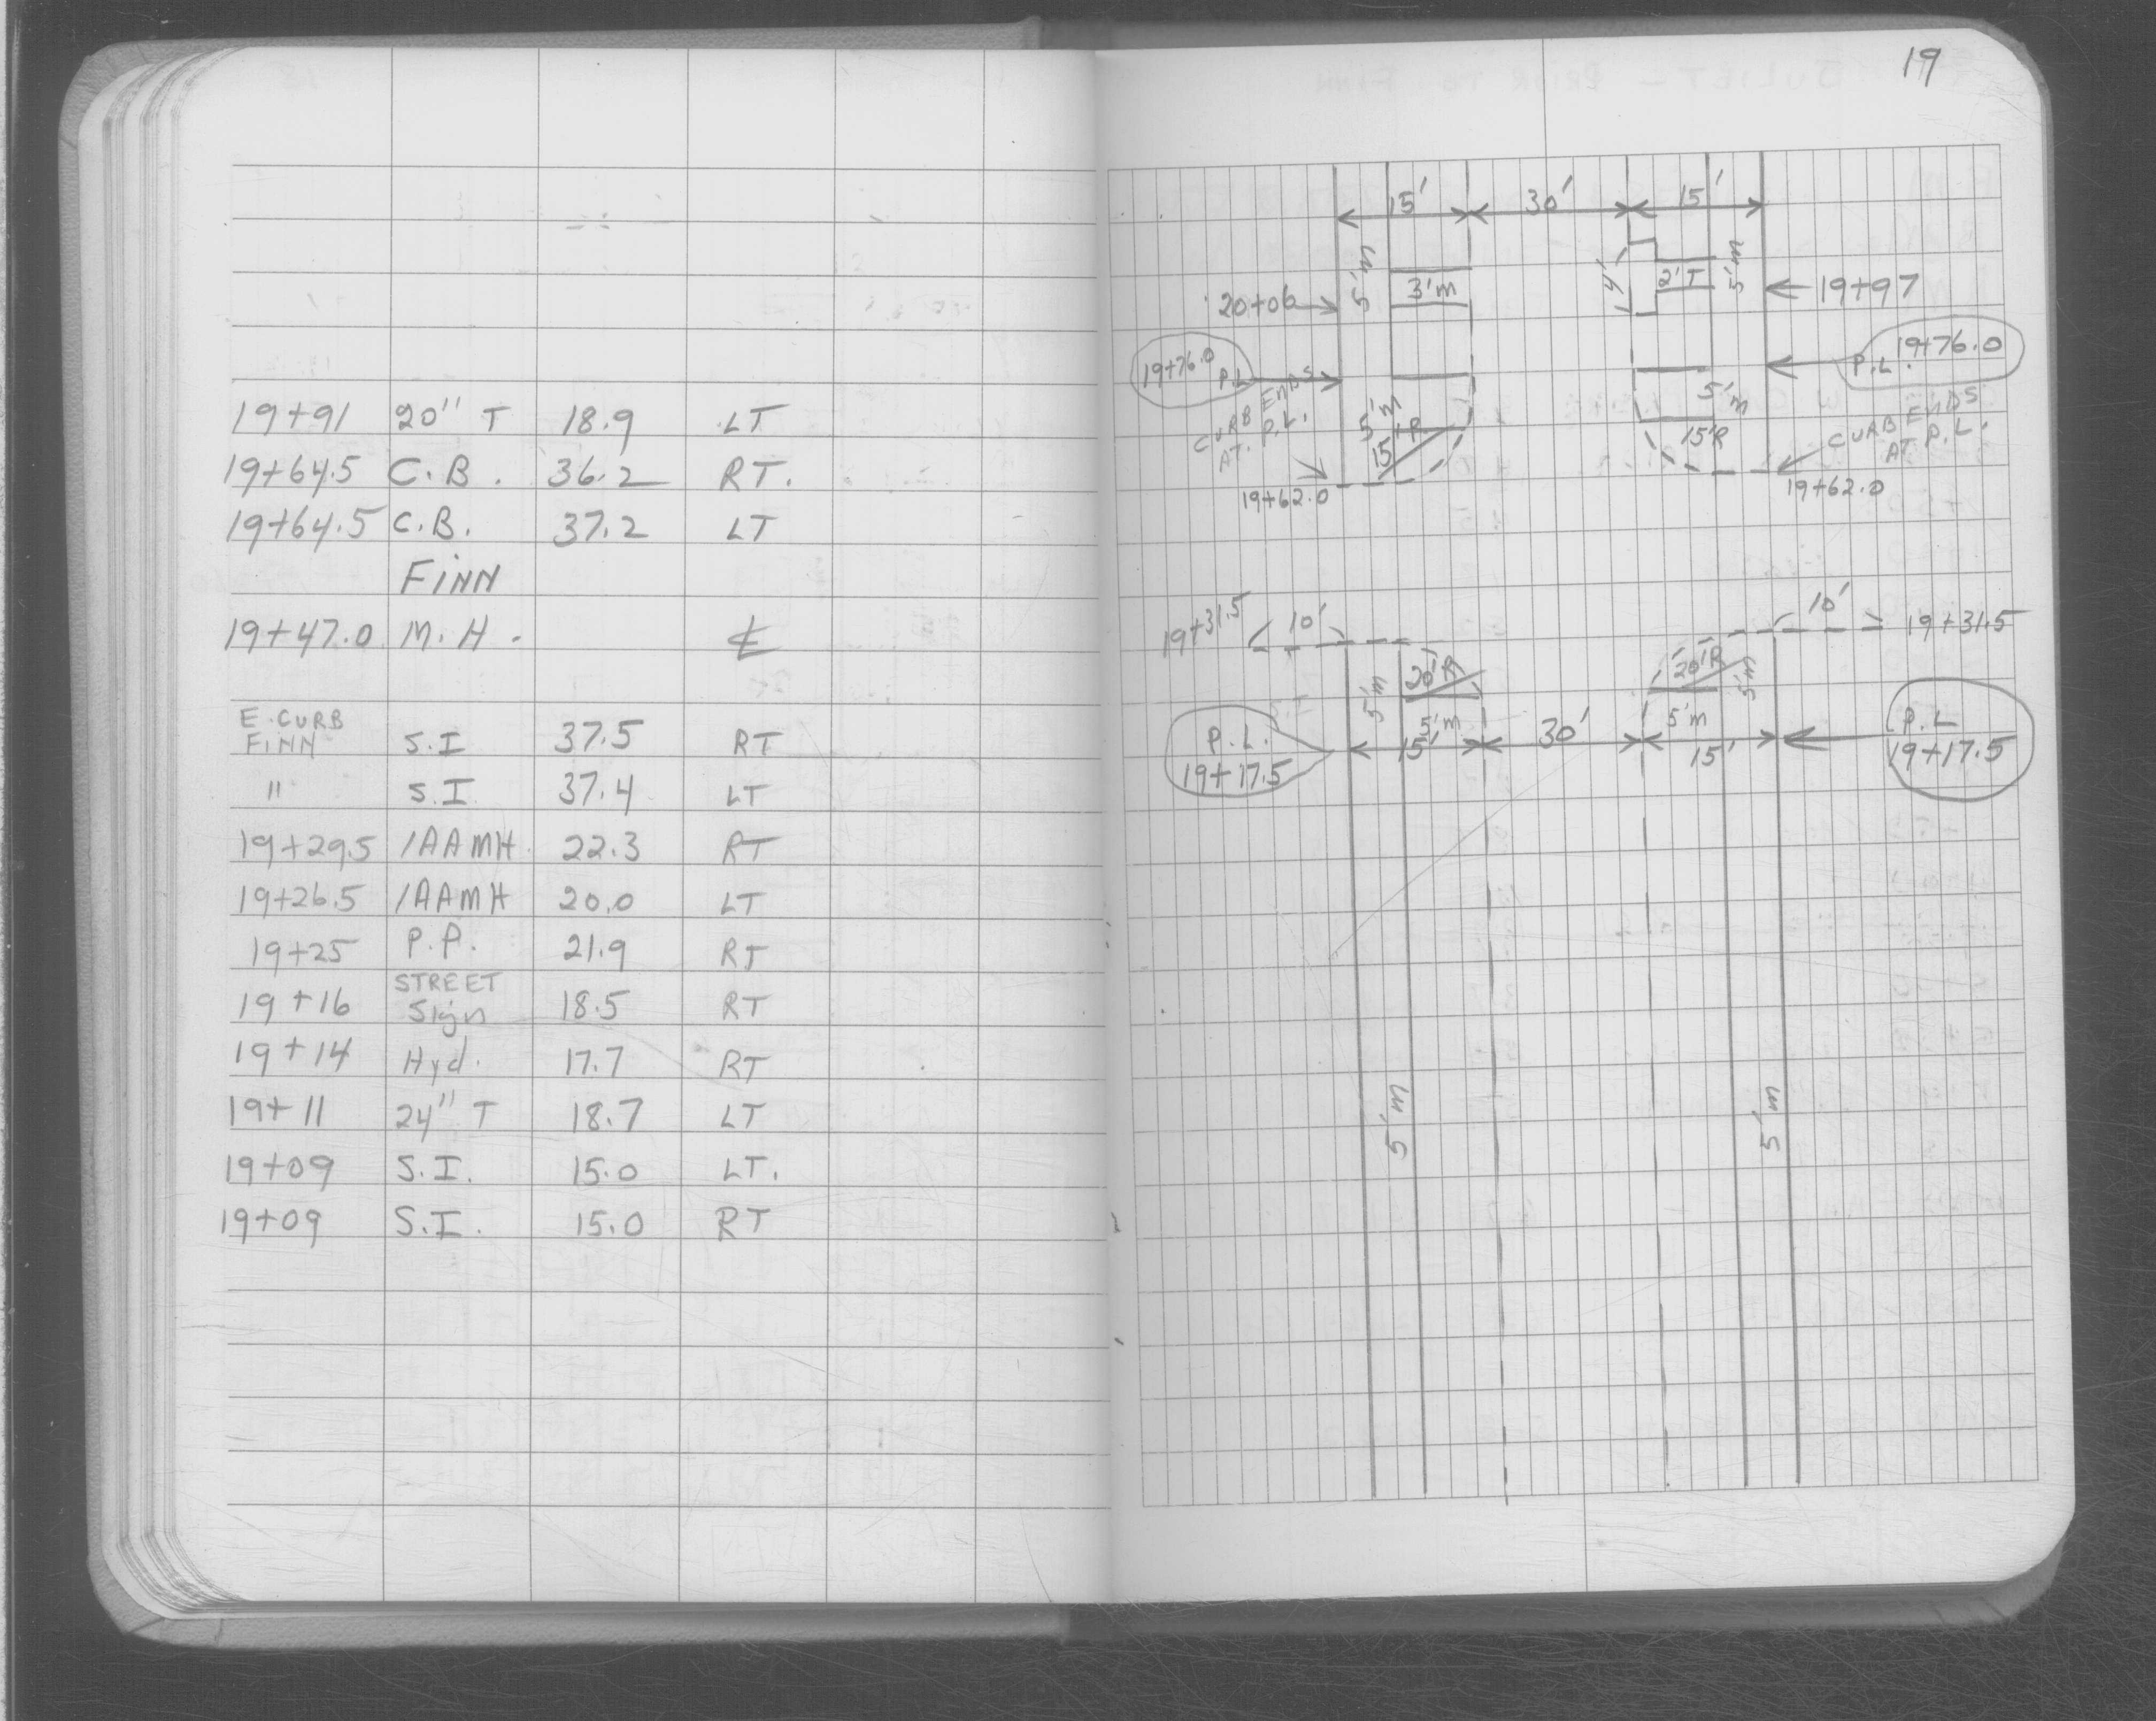 19+91 20" T 18.9 LT
19+64.5 C.B. 36.2 RT.
19+64.5 C.B. 37.2 LT
FINN
19+47.0 M.H. ℄
E. CURB
FINN S.I 37.5 RT
" S.I 37.4 LT
19+29.5 1AAMH 22.3 RT
19+26.5 1AAMH 20.0 LT
19+25 P.P. 21.9 RT
STREET
19+16 Sign 18.5 RT
19+14 Hyd. 17.7 RT
19+11 24" T 18.7 LT
19+09 S.I. 15.0 LT.
19+09 S.I. 15.0 RT
19
15' 30' 15'
5'm 4' 5'm
3'm 2'T
20+06 19+97
19+76.0 P.L. P.L. 19+76.0
CURB ENDS
AT P.L.
5'm
15'R
5'm
15'R
CURB ENDS
AT P.L.
19+62.0 19+62.0
19+31.5 10' 10' 19+31.5
5'm 20'R 20'R 5'm
5'm 5'm
P.L.
19+17.5
15' 30' 15'
P.L
19+17.5
5'm 5'm